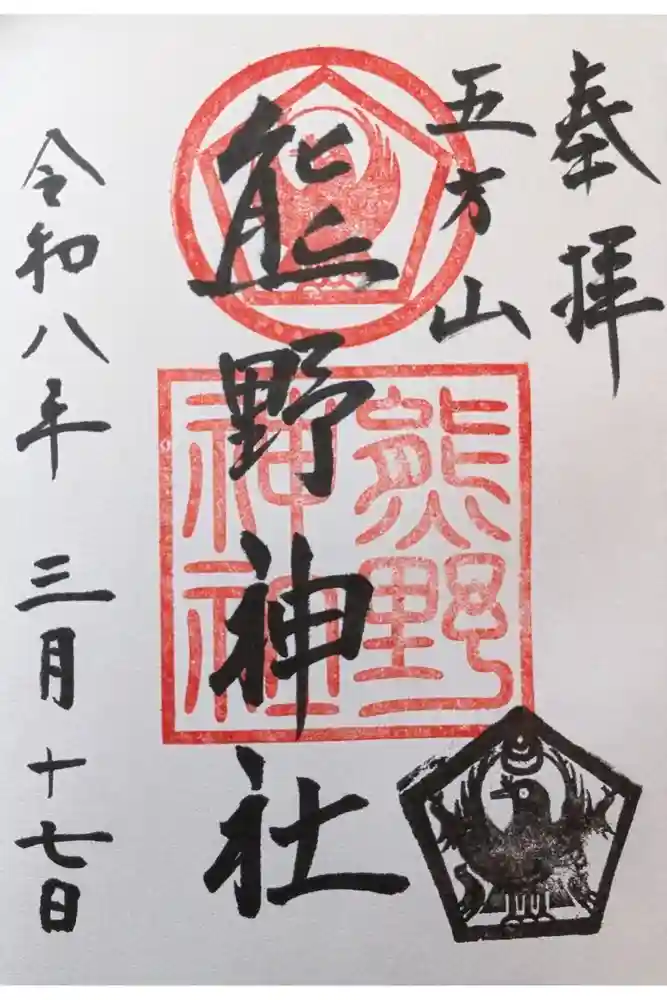 奉拝
五方山
熊野神社
熊野
神社
令和八年 三月十七日